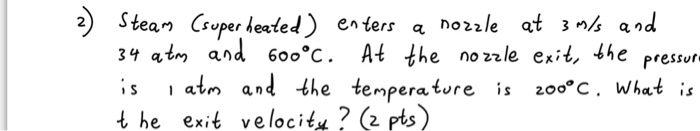 2) Steam (superheated) enters a nozzle at 3 m/s and
34 atm and 600°C. At the nozzle exit, the pressur
is 1 atm and the temperature is 200°C. What is
the exit velocity? (2 pts)